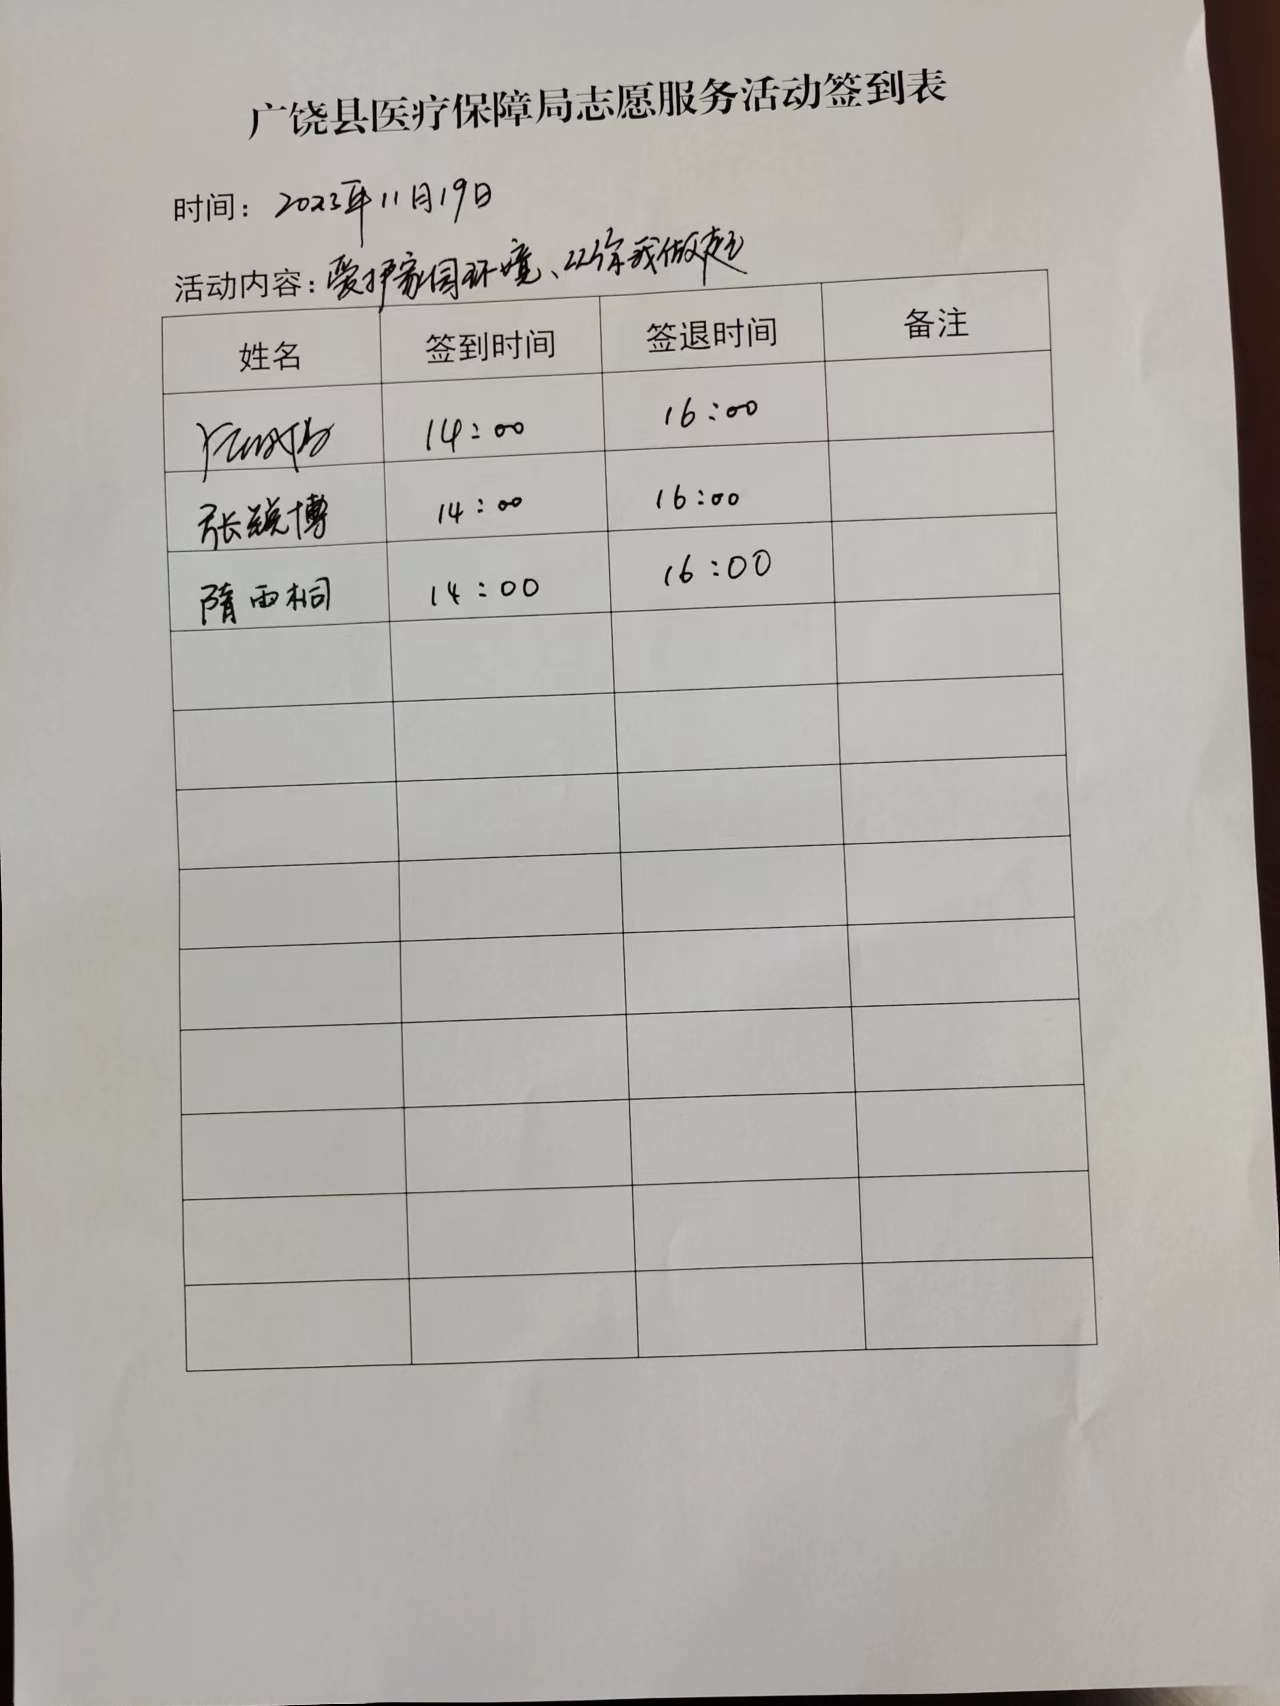 广饶县医疗保障局志愿服务活动签到表
时间：2023年11月19日
活动内容：爱护家园环境、从我做起
姓名 签到时间 签退时间 备注
14：00 16：00
张 博 14：00 16：00
隋雨桐 14：00 16：00